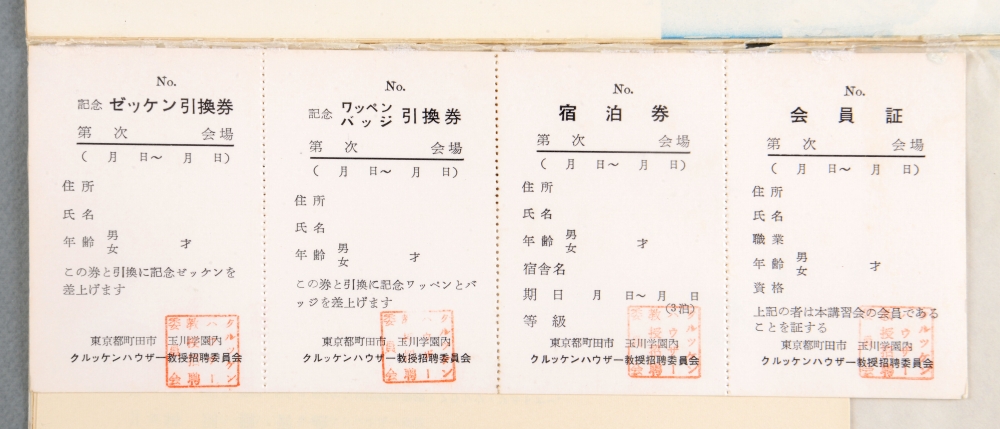 No.
記念 ゼッケン引換券
第 次 会場
( 月 日〜 月 日)
住所
氏名
年齢 男 女 才
この券と引換に記念ゼッケンを
差上げます
東京都町田市 玉川学園内
クルッケンハウザー教授招聘委員会
No.
記念 ワッペン バッジ 引換券
第 次 会場
( 月 日〜 月 日)
住所
氏名
年齢 男 女 才
この券と引換に記念ワッペンとバ
ッジを差上げます
東京都町田市 玉川学園内
クルッケンハウザー教授招聘委員会
No.
宿泊券
第 次 会場
( 月 日〜 月 日)
住所
氏名
年齢 男 女 才
宿舎名
期日 月 日〜 月 日
(3泊)
等級
東京都町田市 玉川学園内
クルッケンハウザー教授招聘委員会
No.
会員証
第 次 会場
( 月 日〜 月 日)
住所
氏名
職業
年齢 男 女 才
資格
上記の者は本講習会の会員である
ことを証する
東京都町田市 玉川学園内
クルッケンハウザー教授招聘委員会